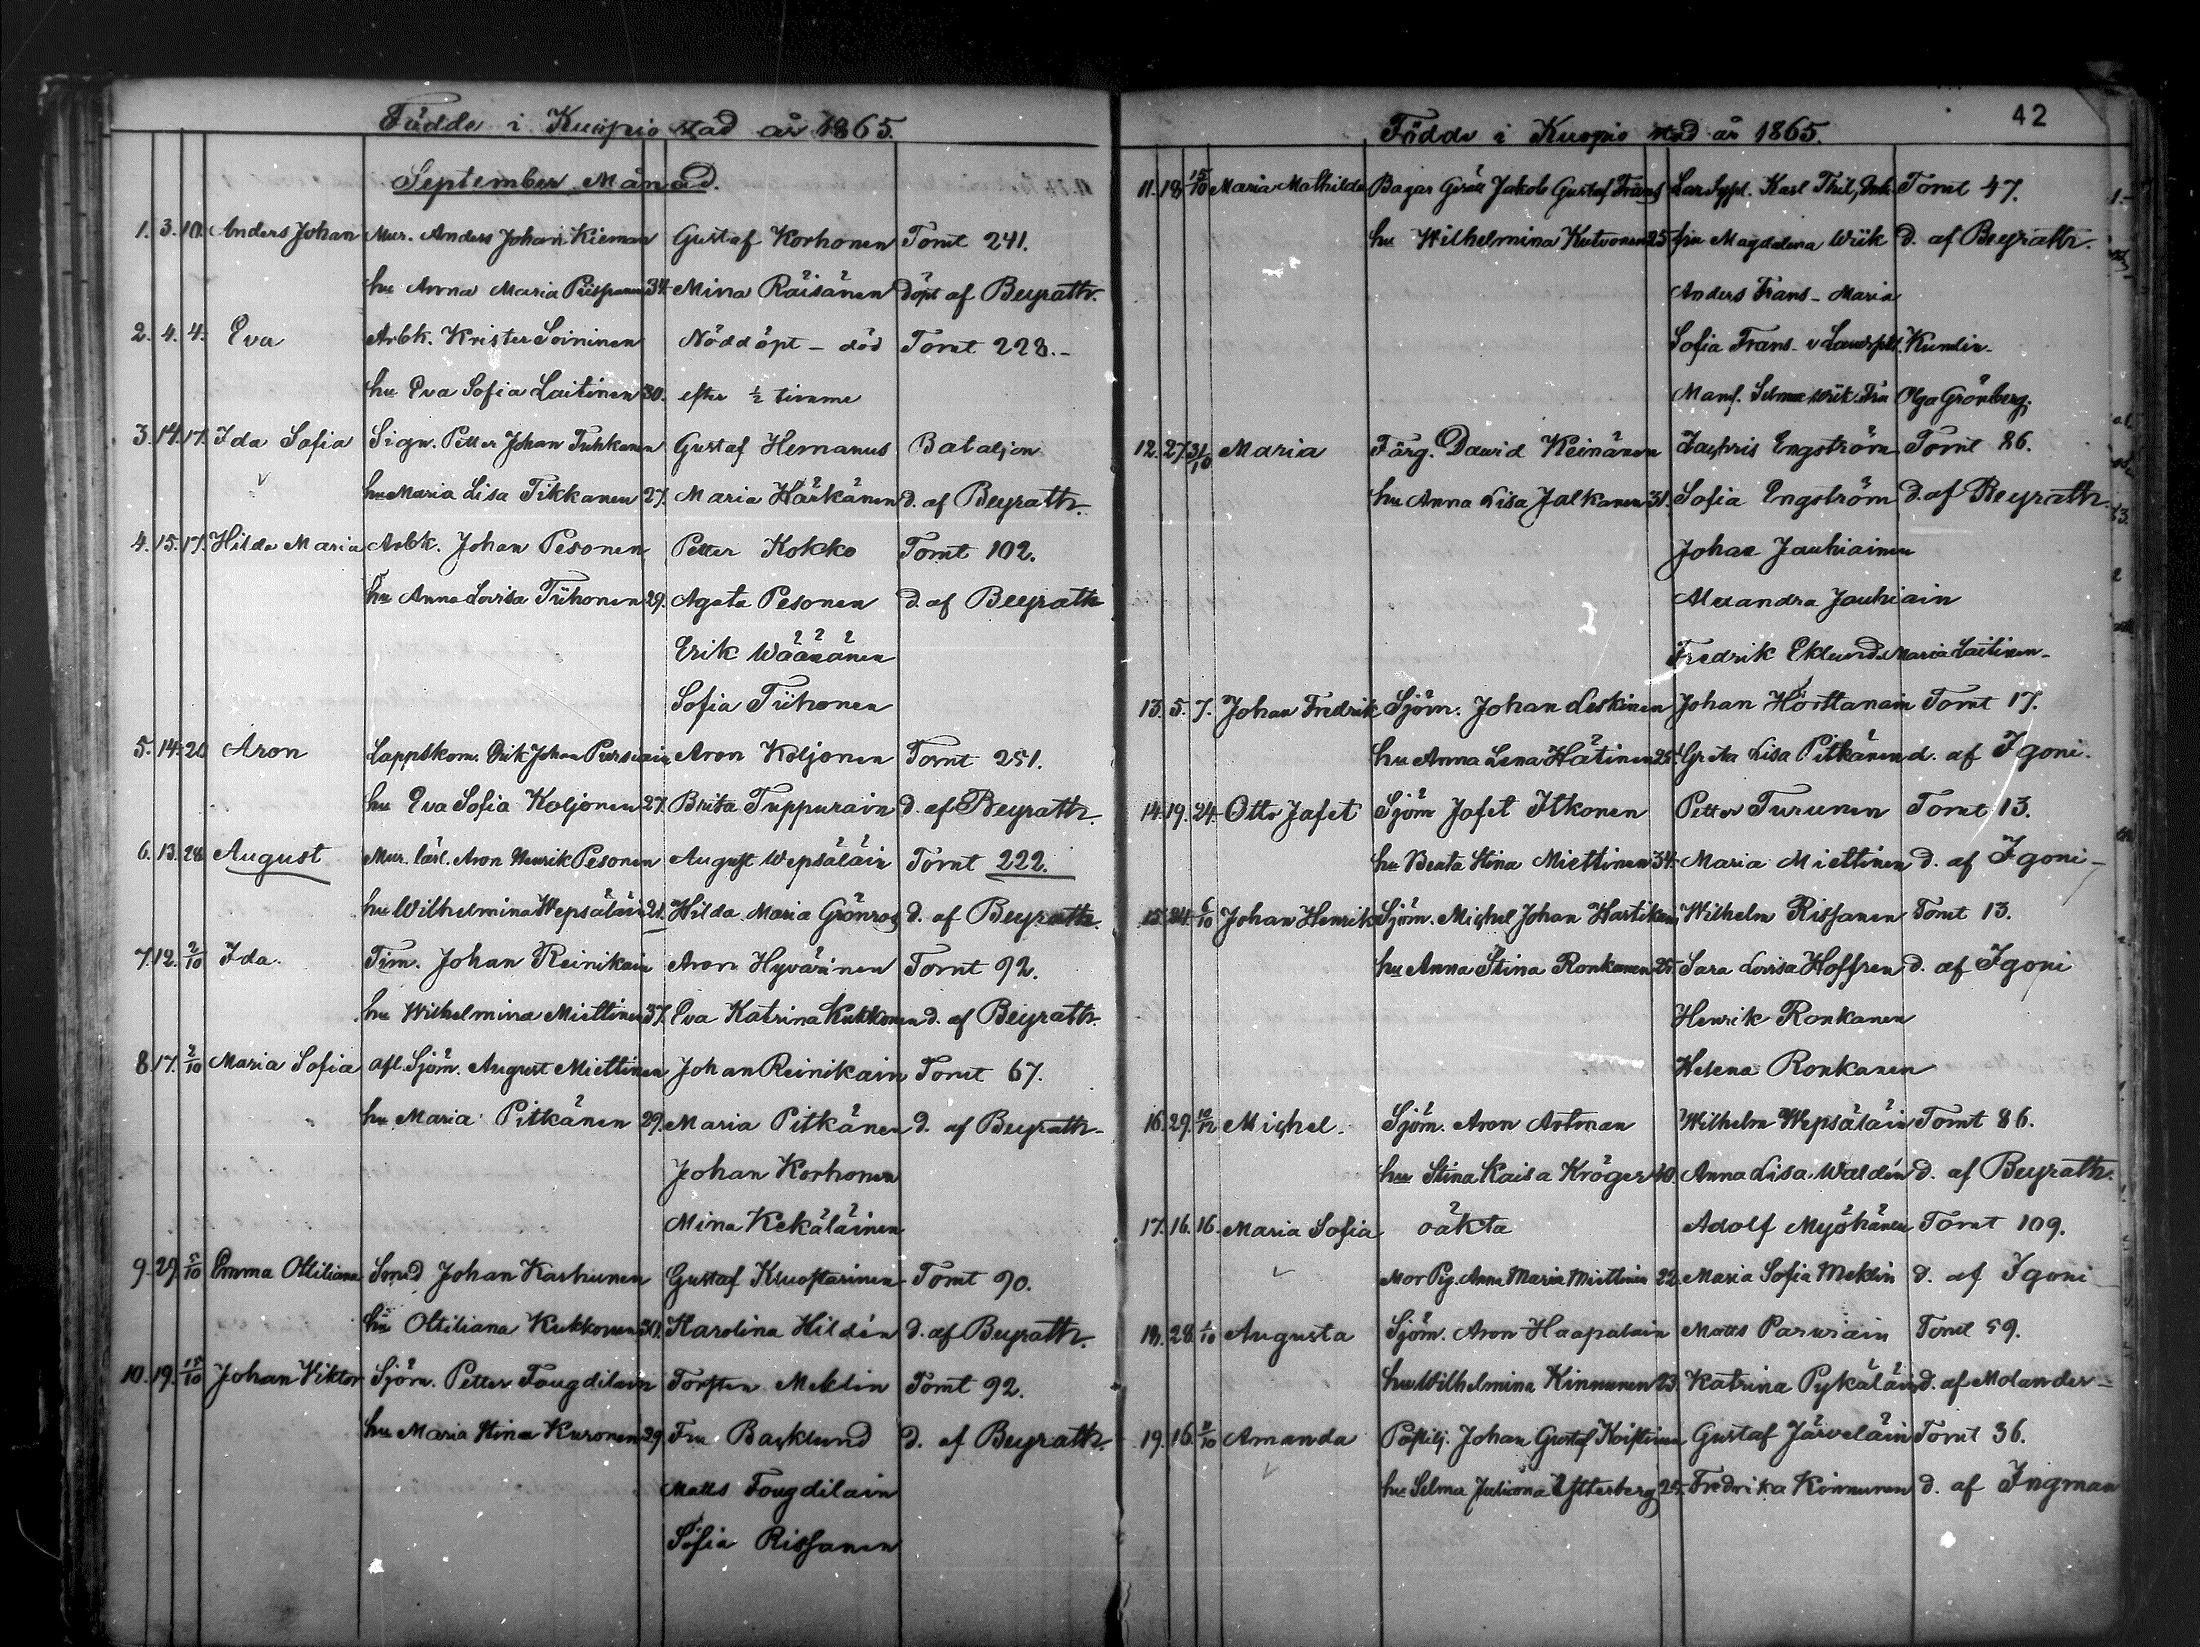 Födde i Kuopio stad år 1865.
September Månad.
1. 3. 10. Anders Johan Mur. Anders Johan Kieman Gustaf Korhonen Tomt 241.
hu Anna Maria 34. Mina Räisänen döpt af Beyrath.
2. 4. 4. Eva Arbk. Krister Soininen Nöddöpt – död Tomt 228. –
hu Eva Sofia Laitinen 30. efter ½ timme
3. 14. 17. Ida Sofia Sign. Petter Johan Tuhkanen Gustaf Hemanus Bataljon
hu Maria Lisa Tikkanen 27. Maria Kärkänen d. af Beyrath.
4. 15. 17. Hilda Maria Arbk. Johan Pesonen Petter Kokko Tomt 102.
hu Anna Lovisa Tiihonen 29. Agata Pesonen d. af Beyrath
Erik Wäänänen
Sofia Tiihonen
5. 14. 20 Aron Lappskom. Erik Johan Aron Koljonen Tomt 251.
hu Eva Sofia Koljonen 27. Brita Tuppurain d. af Beyrath.
6. 13. 28 August Mur. lärl. Aron Henrik Pesonen August Wepsäläin Tomt 222.
hu Wilhelmina Wepsäläin 21. Hilda Maria Grönros d. af Beyrath.
7. 12. 2/10 Ida. Tim. Johan Reinikain Aron Hyvärinen Tomt 92.
hu Wilhelmina Miettinen 37. Eva Katrina Kukkonen d. af Beyrath.
8. 17. 2/10 Maria Sofia afl. Sjöm. August Miettinen Johan Reinikain Tomt 67.
hu Maria Pitkänen 29. Maria Pitkänen d. af Beyrath –
Johan Korhonen
Mina Kekäläinen
9. 29. 5/10 Emma Ottiliana Smed Johan Karhunen Gustaf Tomt 90.
hu Ottiliana Kukkonen 30. Karolina Hildén d. af Beyrath.
10. 19. 15/10 Johan Viktor Sjöm. Petter Fougdilain Torsten Meklin Tomt 92.
hu Maria Stina Kuronen 29. Fru Backlund d. af Beyrath.
Matts Fougdilain
Sofia Rissanen
42
Födde i Kuopio stad år 1865.
11. 18. 15/10 Maria Mathilda Bagar Jakob Gustaf Frans Karl Tomt 47.
hu Wilhelmina Kutvonen 25. fru Magdalena Wiik d. af Beyrath.
Anders Frans – Maria
Sofia Frans – Kundin –
Mams. Selma Wiik Olga Grönberg.
12. 27. 31/10 Maria Färg. David Keinänen Zachris Engström Tomt 86.
hu Anna Lisa Jalkanen 31. Sofia Engström d. af Beyrath.
Johan Jauhiainen
Alexandra Jauhiain
Fredrik Eklund Maria Laitinen –
13. 5. 7. Johan Fredrik Sjöm. Johan Leskinen Johan Höttanain Tomt 17.
hu Anna Lena Hätinen 25. Greta Lisa Pitkänen d. af Igoni.
14. 19. 24. Otto Jafet Sjöm Jafet Itkonen Petter Turunen Tomt 13.
hu Beata Stina Miettinen 34. Maria Miettinen d. af Igoni –
15. 24. 6/10 Johan Henrik Sjöm. Michel Johan Hartikain Wilhelm Rissanen Tomt 13.
hu Anna Stina Ronkanen 25. Sara Lovisa Hoffren d. af Igoni
Henrik Ronkanen
Helena Ronkanen
16. 29. 10/12 Michel. Sjöm. Aron Artman Wilhelm Wepsäläin Tomt 86.
hu Stina Kaisa Kröger 40. Anna Lisa Waldén d. af Beyrath.
17. 16. 16. Maria Sofia oäkta Adolf Myöhänen Tomt 109.
Mor Pig. Anna Maria Miettinen 22. Maria Sofia Meklin d. af Igoni
18. 28. 1/10 Augusta Sjöm. Aron Haapalain Matts Parviain Tomt 59.
hu Wilhelmina Kinnunen 23. Katrina Pykäläin d. af Molander –
19. 16. Amanda Postilj. Johan Gustaf Koistinen Gustaf Järveläin Tomt 36.
hu Selma Juliana Österberg 25. Fredrika Kinnunen d. af Ingman